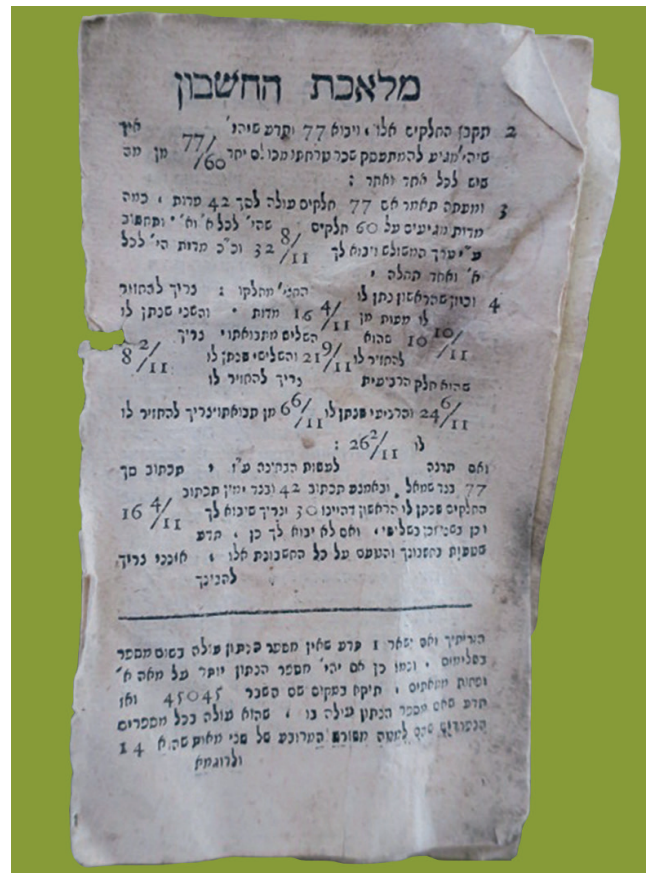 מלאכת החשבון
2 תקבץ החלקים אלו ויבוא 77 ותדע שיהי' איך
שיהי' מגיע להמתעסק שכר טרחתו מכולם יחד 77/60 מן מה
שיש לכל אחד ואחד :
3 ומעתה תאמר אם 77 חלקים עולה לסך 42 מדות , כמה
מדות מגיעים על 60 חלקים שהי' לכל א' וא'
ע"י ערך המשולש ויבוא לך 32 8/11 וכ"כ מדות הי' לכל
א' ואחד תחלה
4 וכיון שהראשון נתן לו החצי' מחלקו : צריך להחזיר
לו מעות מן 16 4/11 מדות והשני שנתן לו
10 10/11 שהוא השליש מתבואתו צריך
להחזיר לו 21 9/11 והשלישי שנתן לו 8 2/11
שהוא חלק הרביעית צריך להחזיר לו
24 6/11 והרביעי שנתן לו 6 6/11 מן תבואתו צריך להחזיר לו
לו 26 2/11 :
ואם תרצה לעשות הבחינה ע"ז תכתוב סך
77 בצד שמאל , ובאמצע תכתוב 42 ובצד ימין תכתוב
החלקים שנתן לו הראשון דהיינו 30 וצריך שיבוא לך 16 4/11
וכן בשני וכן בשלישי , ואם לא יבוא לך כן , תדע
שטעית בחשבונך והטעם על כל החשבונות אלו , אינני צריך
להבינך
הוריתיך ואם ישאר 1 תדע שאין מספר הנתון עולה בשום מספר
בשלימים , וכמו כן אם יהי' מספר הנתון יותר על מאה א'
ופחות ממאתים , תיקח במקום שם השבר 45045 ואז
תדע שאם מספר הנתון עולה בו , שהוא עולה בכל מספרים
הנפרדים למטה משורש המרובע של שני מאות שהוא 14
ולדוגמא